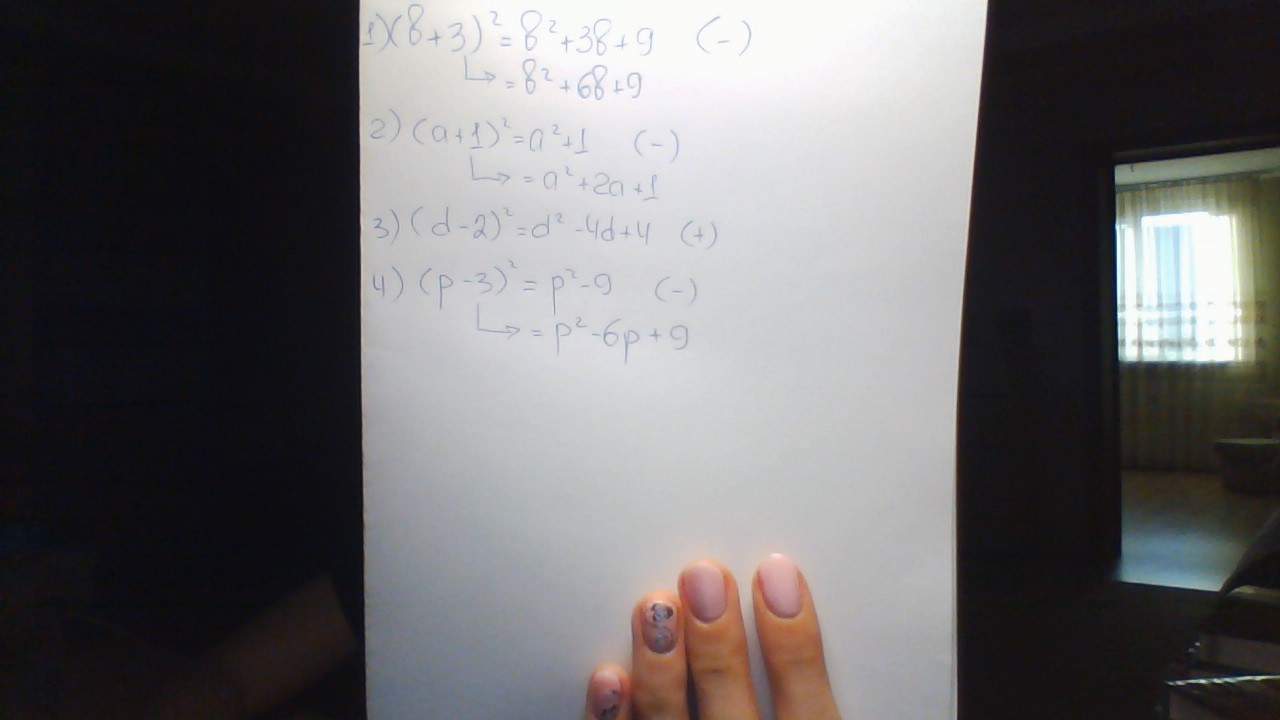 1) (в+3)²=в²+3в+9 (-)
↳=в²+6в+9
2) (a+1)²=a²+1 (-)
↳=a²+2a+1
3) (d-2)²=d²-4d+4 (+)
4) (p-3)²=p²-9 (-)
↳=p²-6p+9